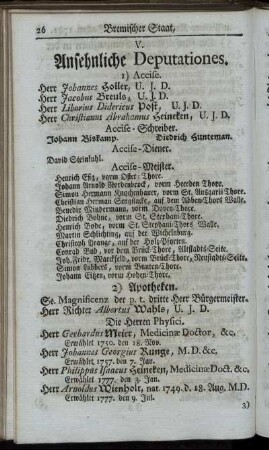 26 Bremischer Staat,
V.
Ansehnliche Deputationes.
1) Accise.
Herr Johannes Holler, U. J. D.
Herr Jacobus Breuls, U. J. D.
Herr Liborius Didericus Post, U. J. D.
Herr Christianus Abrahamus Heineken, U. J. D.
Accise-Schreiber.
Johann Biskamp. Diedrich Gunteman.
Accise-Diener.
David Steinfuhl.
Accise-Meister.
Henrich Eß, vorm Oster-Thore.
Johann Arnold vorm Heerden-Thore.
Simon Hermann Knochenhauer, vorm St. Ansgarii-Thore.
Christian Herman auf dem Abben-Thors Walle.
Benedix Mindermann, vorm Doven-Thore.
Diedrich Bohne, vorm St. Stephani-Thore.
Henrich Bode, vorm St. Stephani-Thors Walle.
Martin Schlichting, auf der Wichelnburg.
Christoph Prange, auf der Holz-Pforten.
Conrad Bad, vor der Brück-Thore, Neustadts-Seite.
Joh. Fridr. Markfeld, vorm Brück-Thore, Neustadts-Seite.
Simon Lübbers, vorm Bunten-Thore.
Johann Eitzen, vorm Hohen-Thore.
2) Apotheken.
Se. Magnificenz der p. t. dritte Herr Bürgermeister.
Herr Richter Albertus Wahls, U. J. D.
Die Herren Physici.
Herr Gerhardus Meier, Medicinæ Doctor, &c.
Erwählt 1750. den 18. Nov.
Herr Johannes Georgius Runge, M. D. &c.
Erwählt 1757. den 7. Jan.
Herr Philippus Isaacus Heineken, Medicinæ Doct. &c.
Erwählt 1777. den 3. Jan.
Herr Arnoldus Wienholt, nat. 1749. d. 18. Aug. M. D.
Erwählt 1777. den 9. Jul.
3)